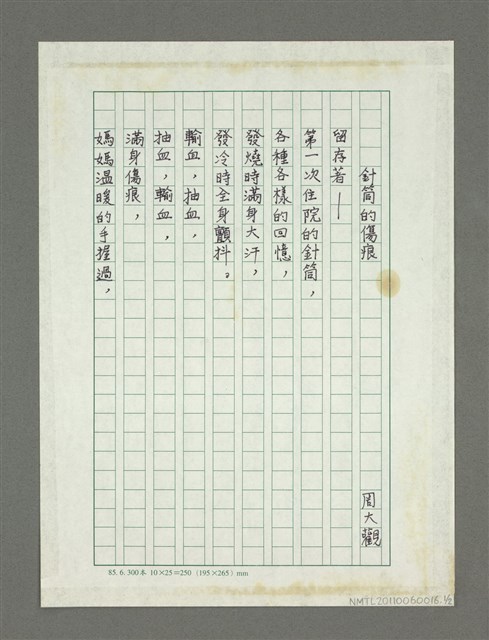 針筒的傷痕
周大觀
留存著—
第一次住院的針筒，
各種各樣的回憶，
發燒時滿身大汗，
發冷時全身顫抖。
輸血，抽血，
抽血，輸血，
滿身傷痕，
媽媽溫暖的手握過，
85. 6. 300本 10×25=250 (195×265) mm
NMTL20110060018.1/2